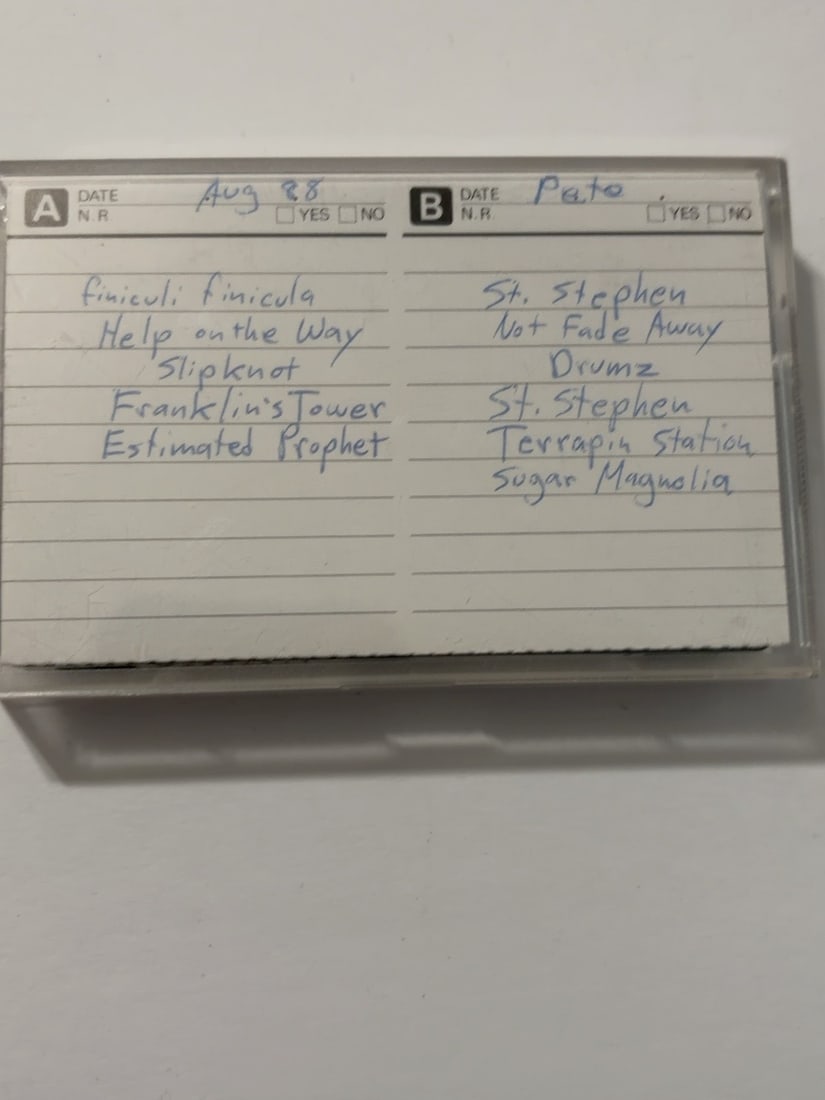 A DATE Aug 88
N.R. YES NO
finiculi finicula
Help on the Way
Slipknot
Franklin's Tower
Estimated Prophet
B DATE Pete
N.R. YES NO
St. Stephen
Not Fade Away
Drumz
St. Stephen
Terrapin Station
Sugar Magnolia